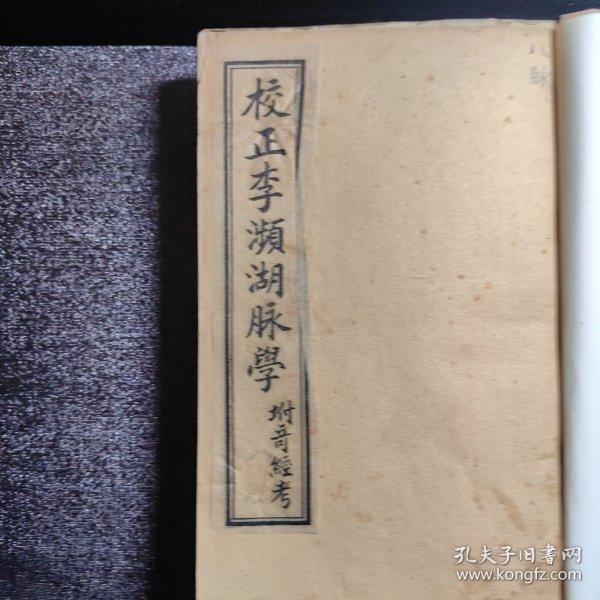 校正李瀕湖脉學
坿奇經考
孔夫子旧书网
www.kongfz.com